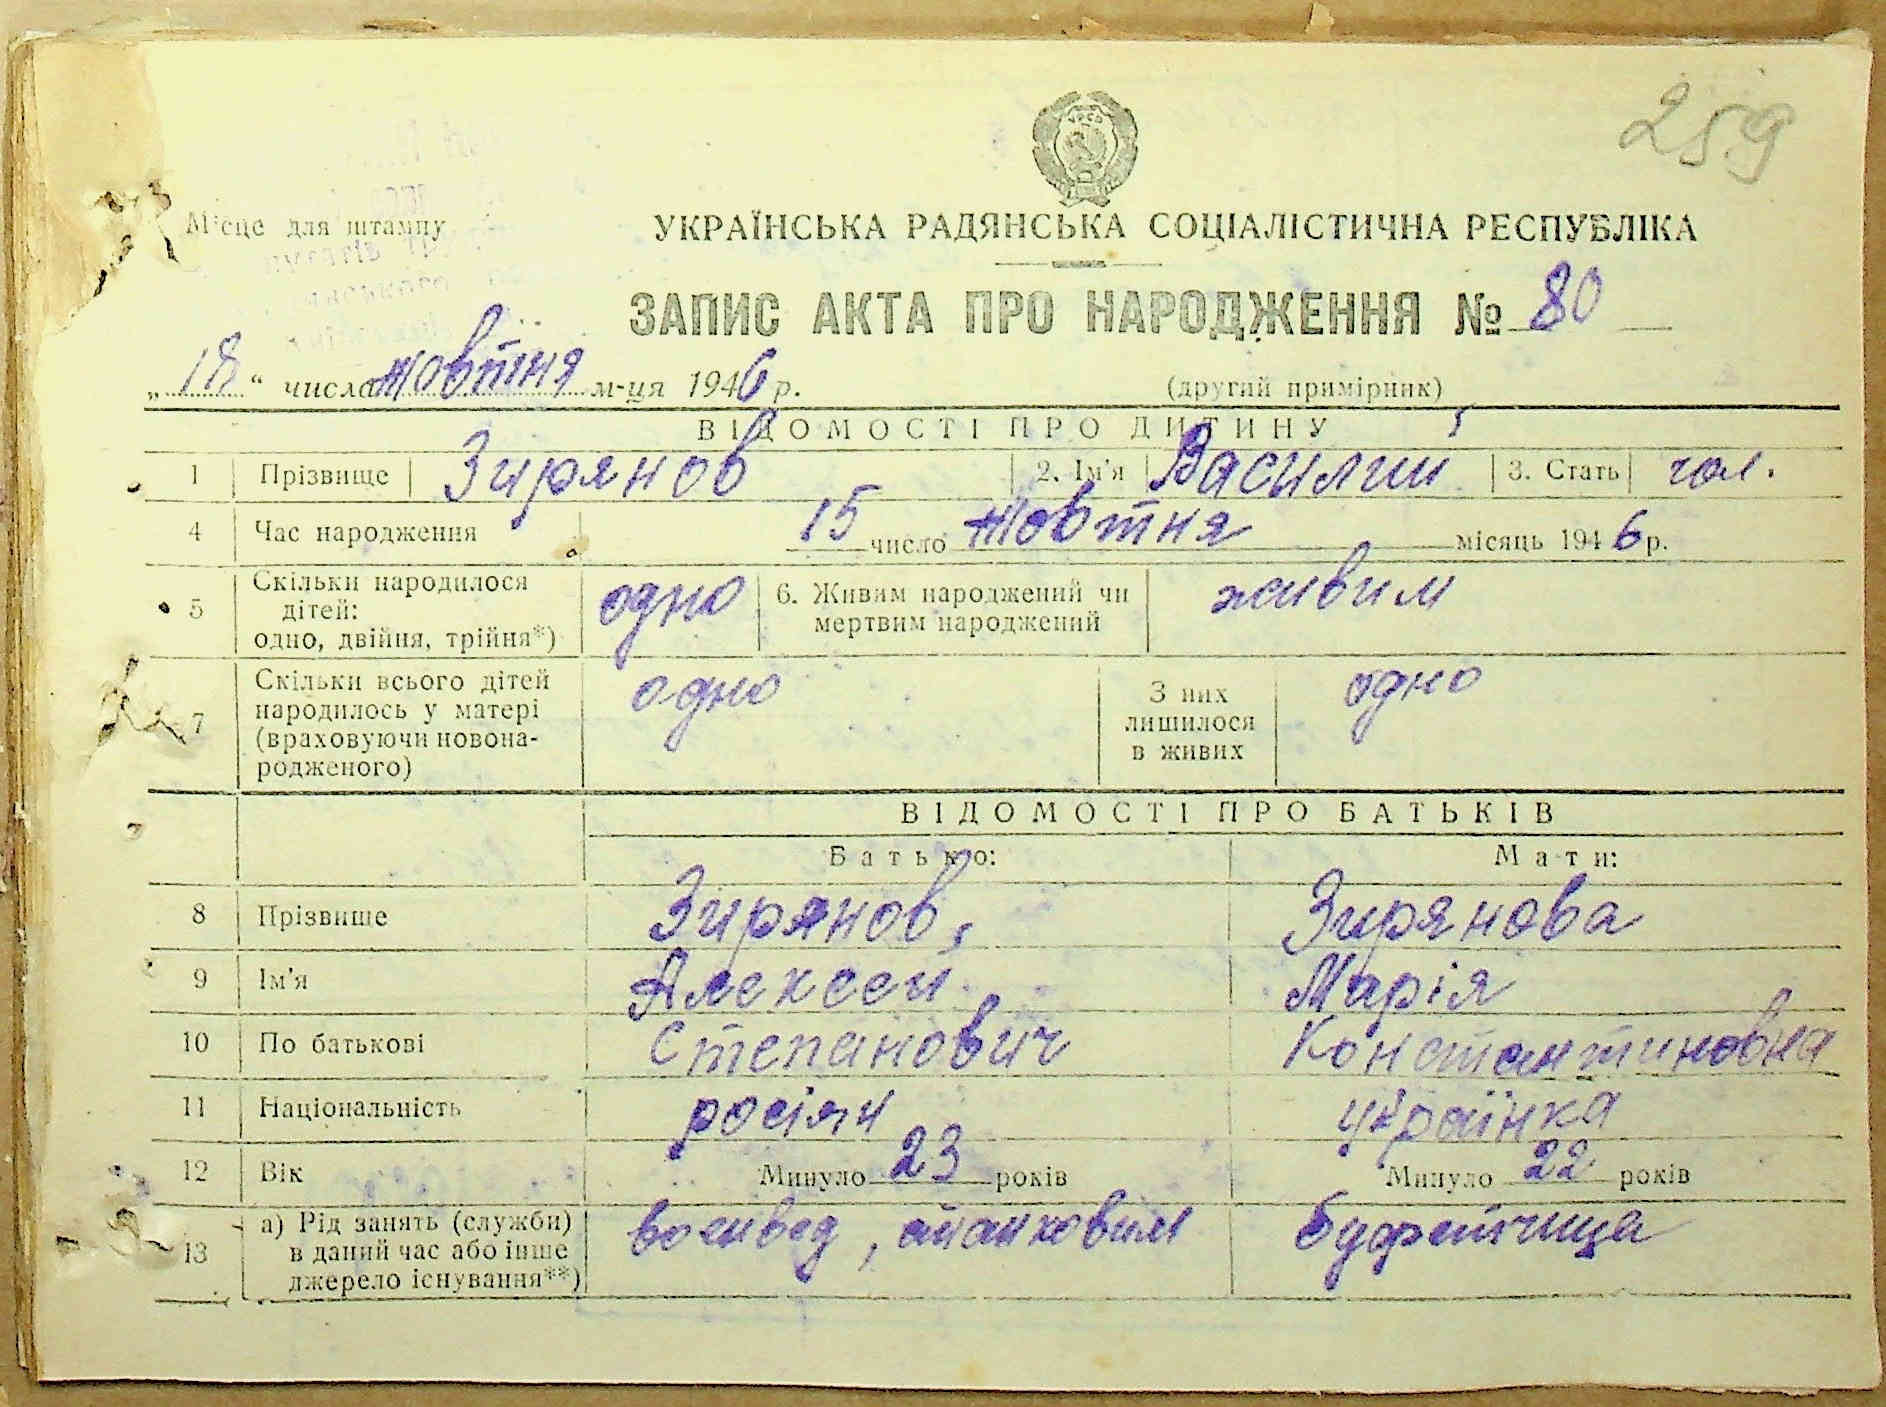 259
УРСР
Місце для штампу
УКРАЇНСЬКА РАДЯНСЬКА СОЦІАЛІСТИЧНА РЕСПУБЛІКА
ЗАПИС АКТА ПРО НАРОДЖЕННЯ № 80
„18“ числа жовтня м-ця 1946 р.
(другий примірник)
ВІДОМОСТІ ПРО ДИТИНУ
1 Прізвище Зирянов 2. Ім'я Василий 3. Стать чол.
4 Час народження 15 число жовтня місяць 1946 р.
5 Скільки народилося дітей: одно, двійня, трійня*) одно 6. Живим народжений чи мертвим народжений живим
7 Скільки всього дітей народилось у матері (враховуючи новонародженого) одно З них лишилося в живих одно
ВІДОМОСТІ ПРО БАТЬКІВ
Батько: Мати:
8 Прізвише Зирянов Зирянова
9 Ім'я Алексей Марія
10 По батькові Степанович Константиновна
11 Національність росіян українка
12 Вік Минуло 23 років Минуло 22 років
13 а) Рід занять (служби) в даний час або інше джерело існування**) военвед, буфетчица